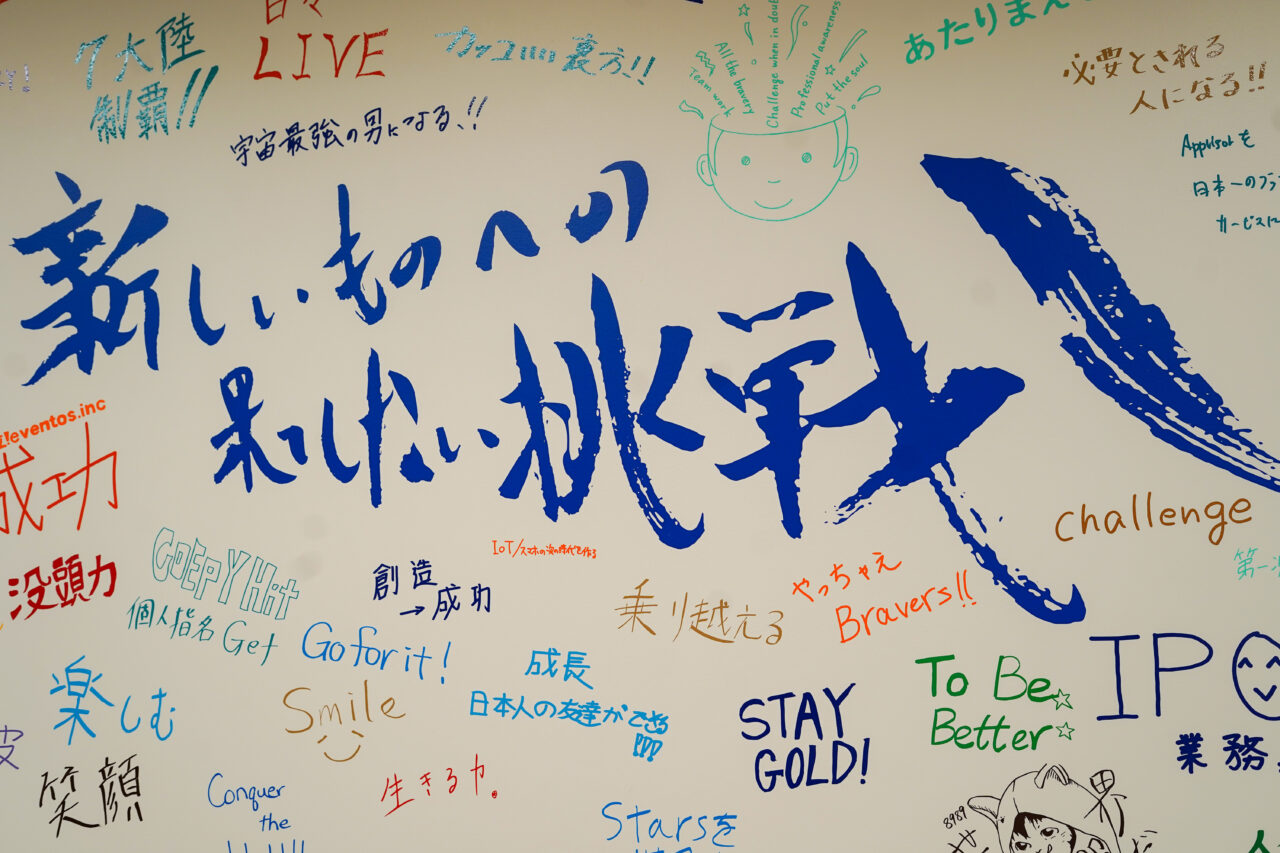 日々
LIVE
7大陸
制覇!!
カッコいい裏方!!
宇宙最強の男になる、!!
Team work
All the bravery
Challenge when in doubt
Professional awareness
Put the soul
あたりまえ
必要とされる
人になる!!
を
日本一の
新しいものへの
果てしない挑戦
eventos.inc
成功
没頭力
GOEPY Hit
個人指名 Get
創造
→成功
IoT/スマホの次の時代を作る
Go for it!
乗り越える
やっちゃえ
Bravers!!
challenge
第一
楽しむ
Smile
成長
日本人の友達ができる
!!!
STAY
GOLD!
To Be
Better
IPO
業務
笑顔
Conquer
the
生きる力。
Starsを
8989
界